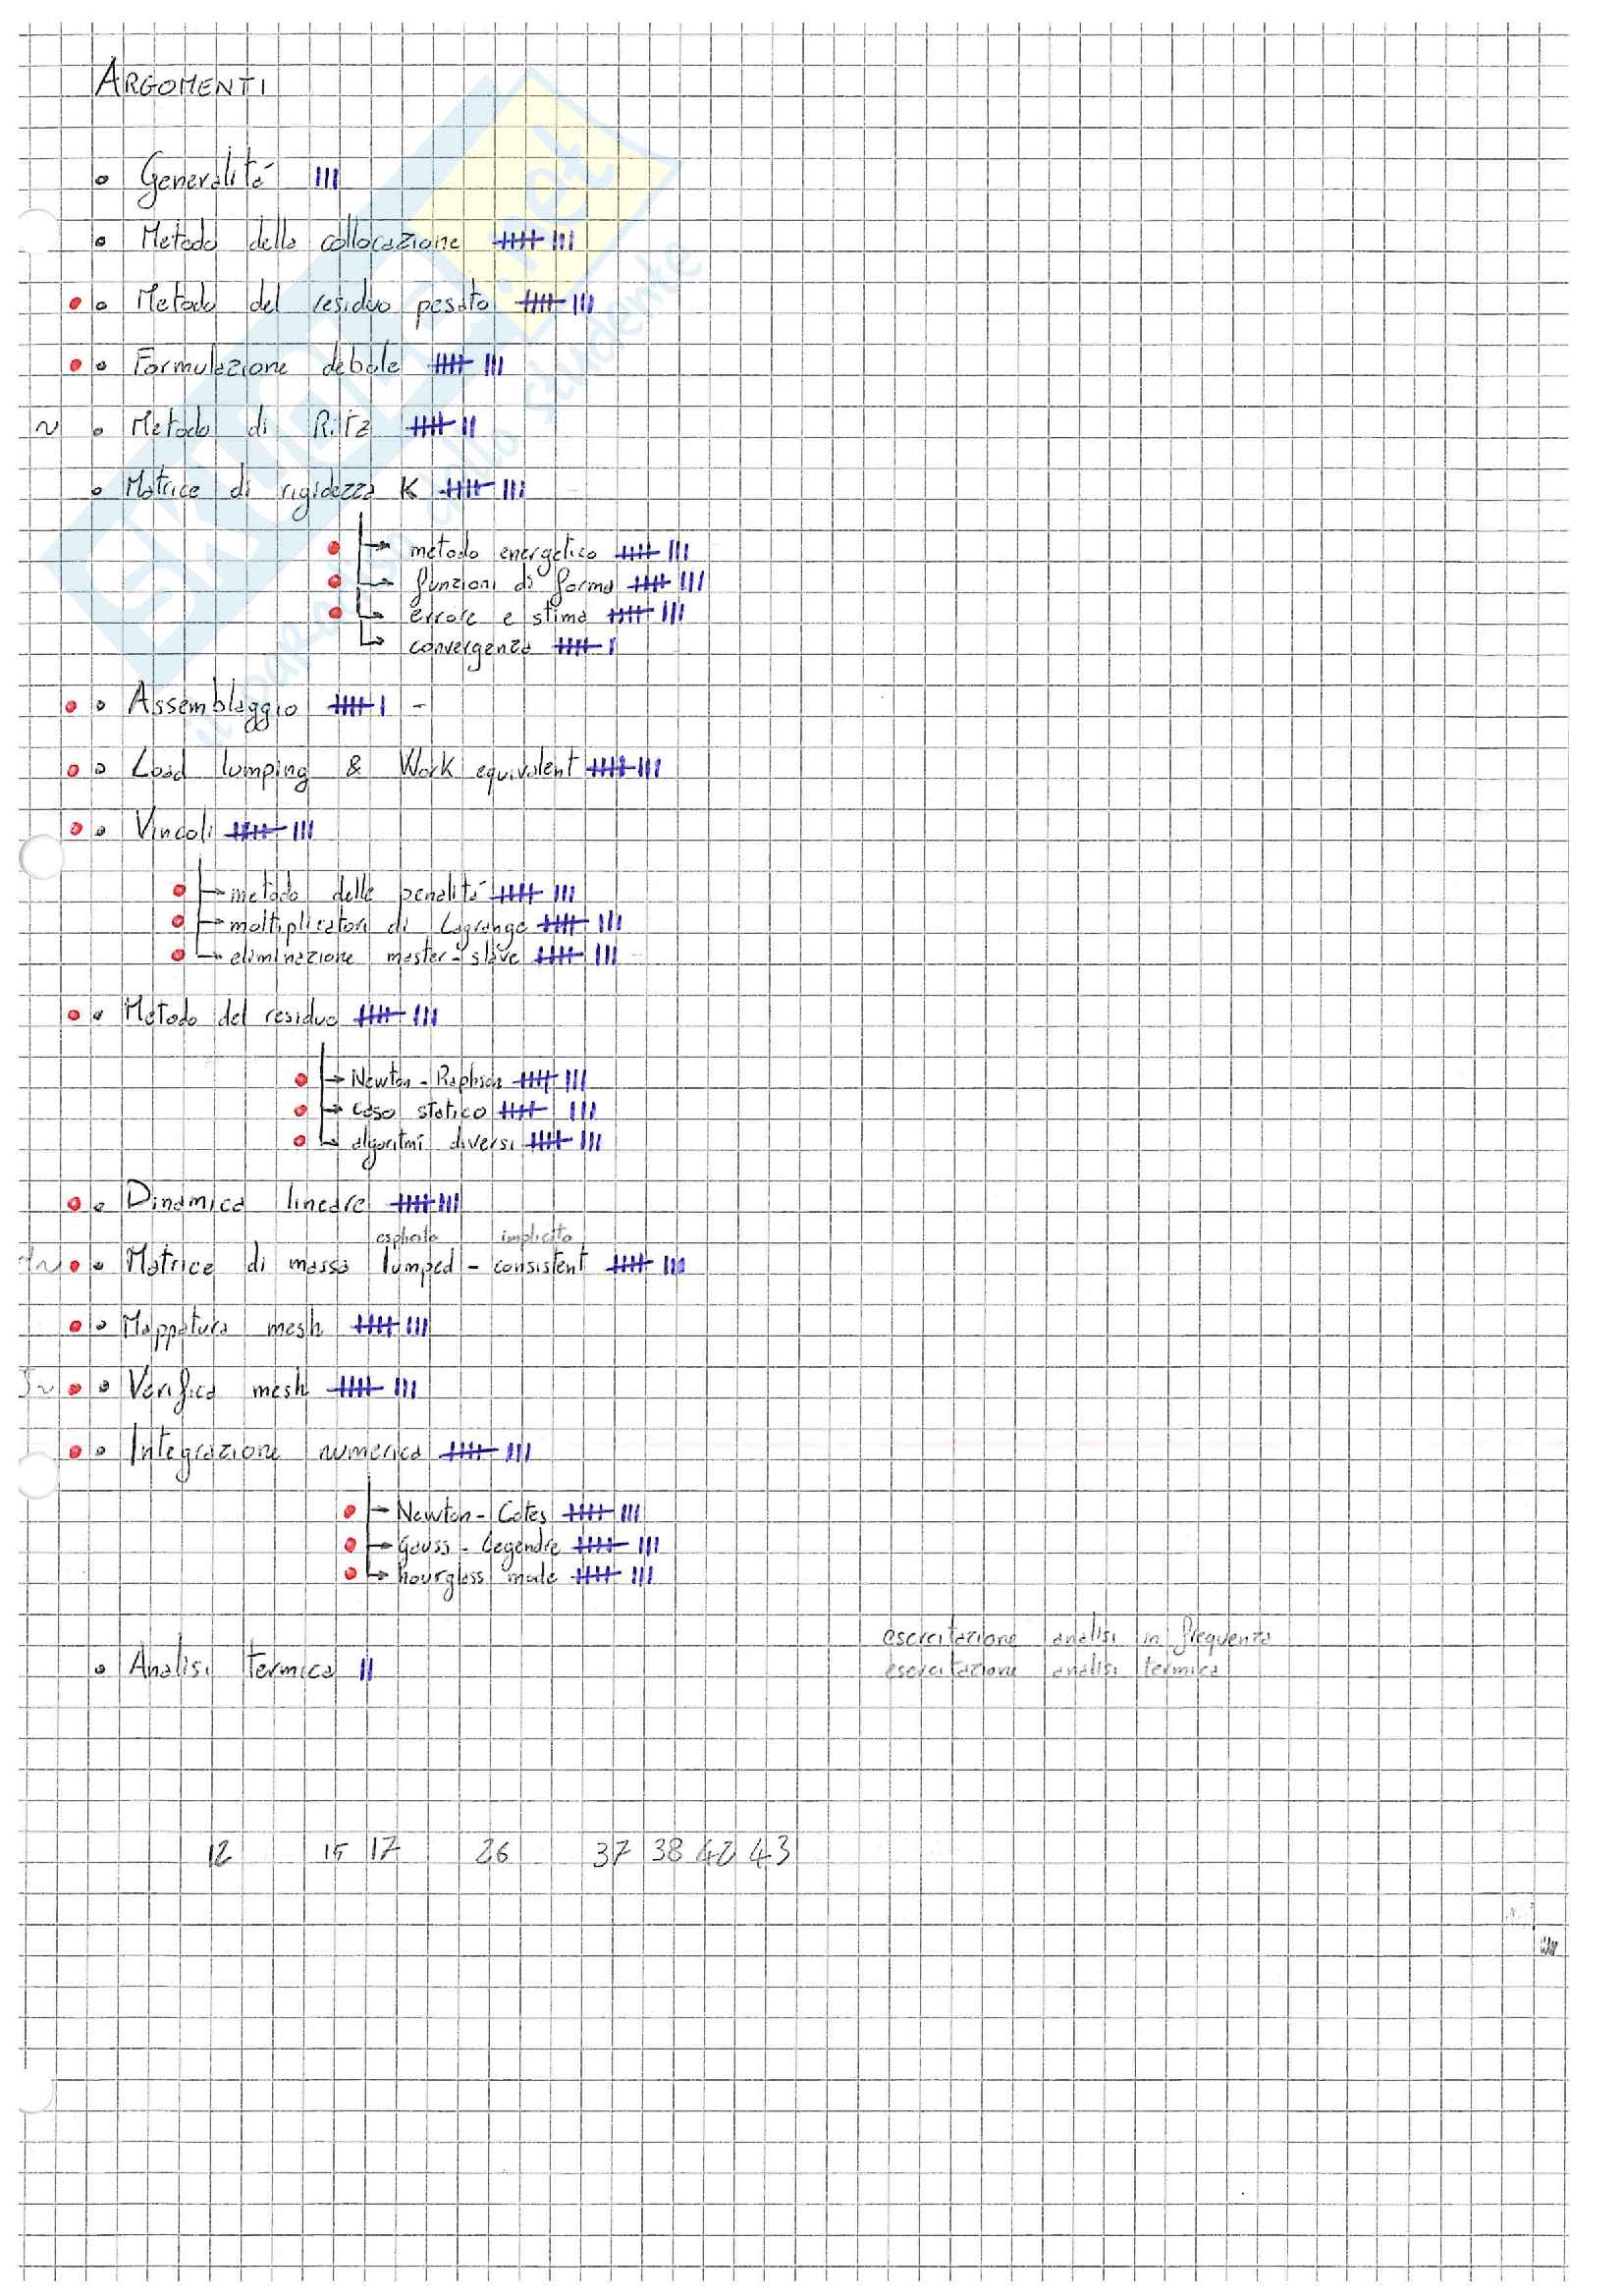 ARGOMENTI
Generalitá
Metodo della collocazione
Metodo del residuo pesato
Formulazione debole
~ Metodo di Ritz
Matrice di rigidezza K
metodo energetico
funzioni di forma
errore e stima
convergenza
Assemblaggio -
Load lumping & Work equivalent
Vincoli
metodo delle penalitá
moltiplicatori di Lagrange
eliminazione master-slave
Metodo del residuo
Newton-Raphson
caso statico
algoritmi diversi
Dinamica lineare
esplicito implicito
Matrice di massa lumped - consistent
Mappatura mesh
Verifica mesh
Integrazione numerica
Newton-Cotes
Gauss-Legendre
hourglass mode
esercitazione analisi in frequenza
Analisi termica
esercitazione analisi termica
12 15 17 26 37 38 42 43
SKUOLA.net